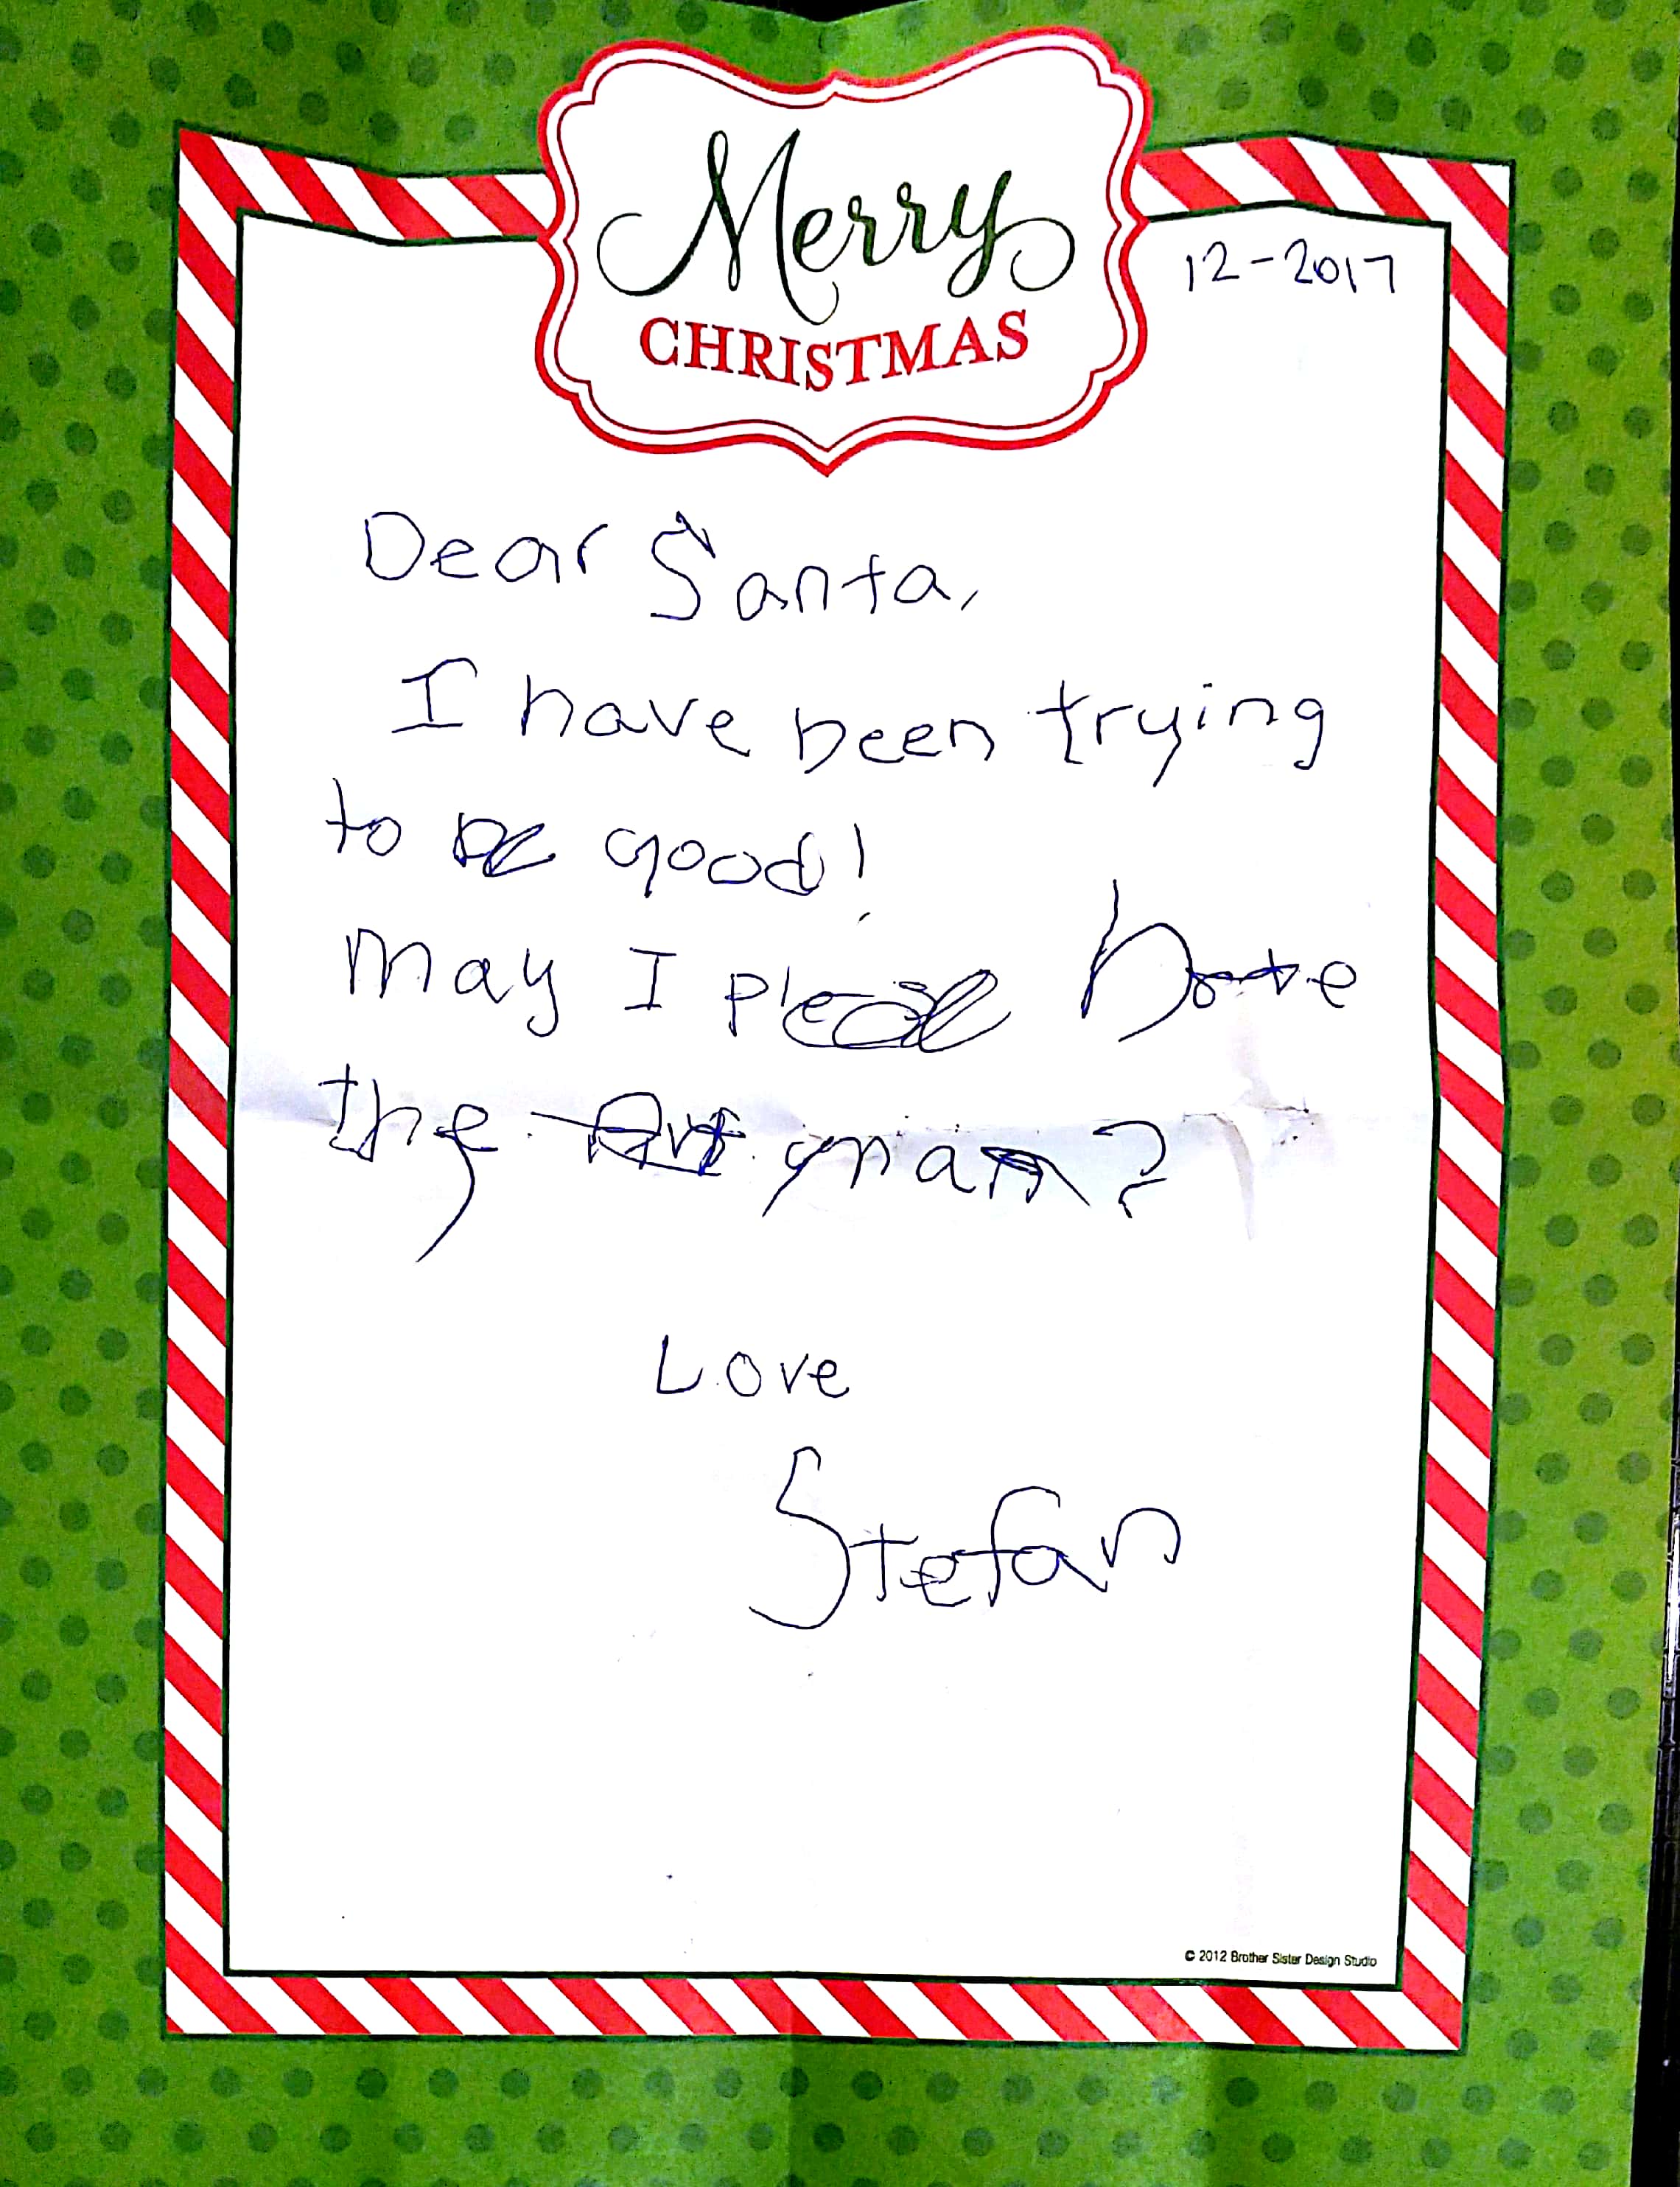 Merry
CHRISTMAS
12-2017
Dear Santa,
I have been trying
to be good!
May I please have
the
Love
Stefan
© 2012 Brother Sister Design Studio